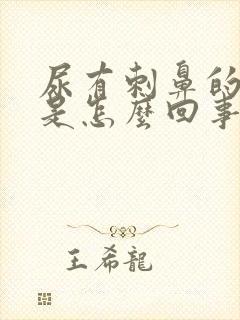 尿有刺鼻的
是怎麼回事
王希龍